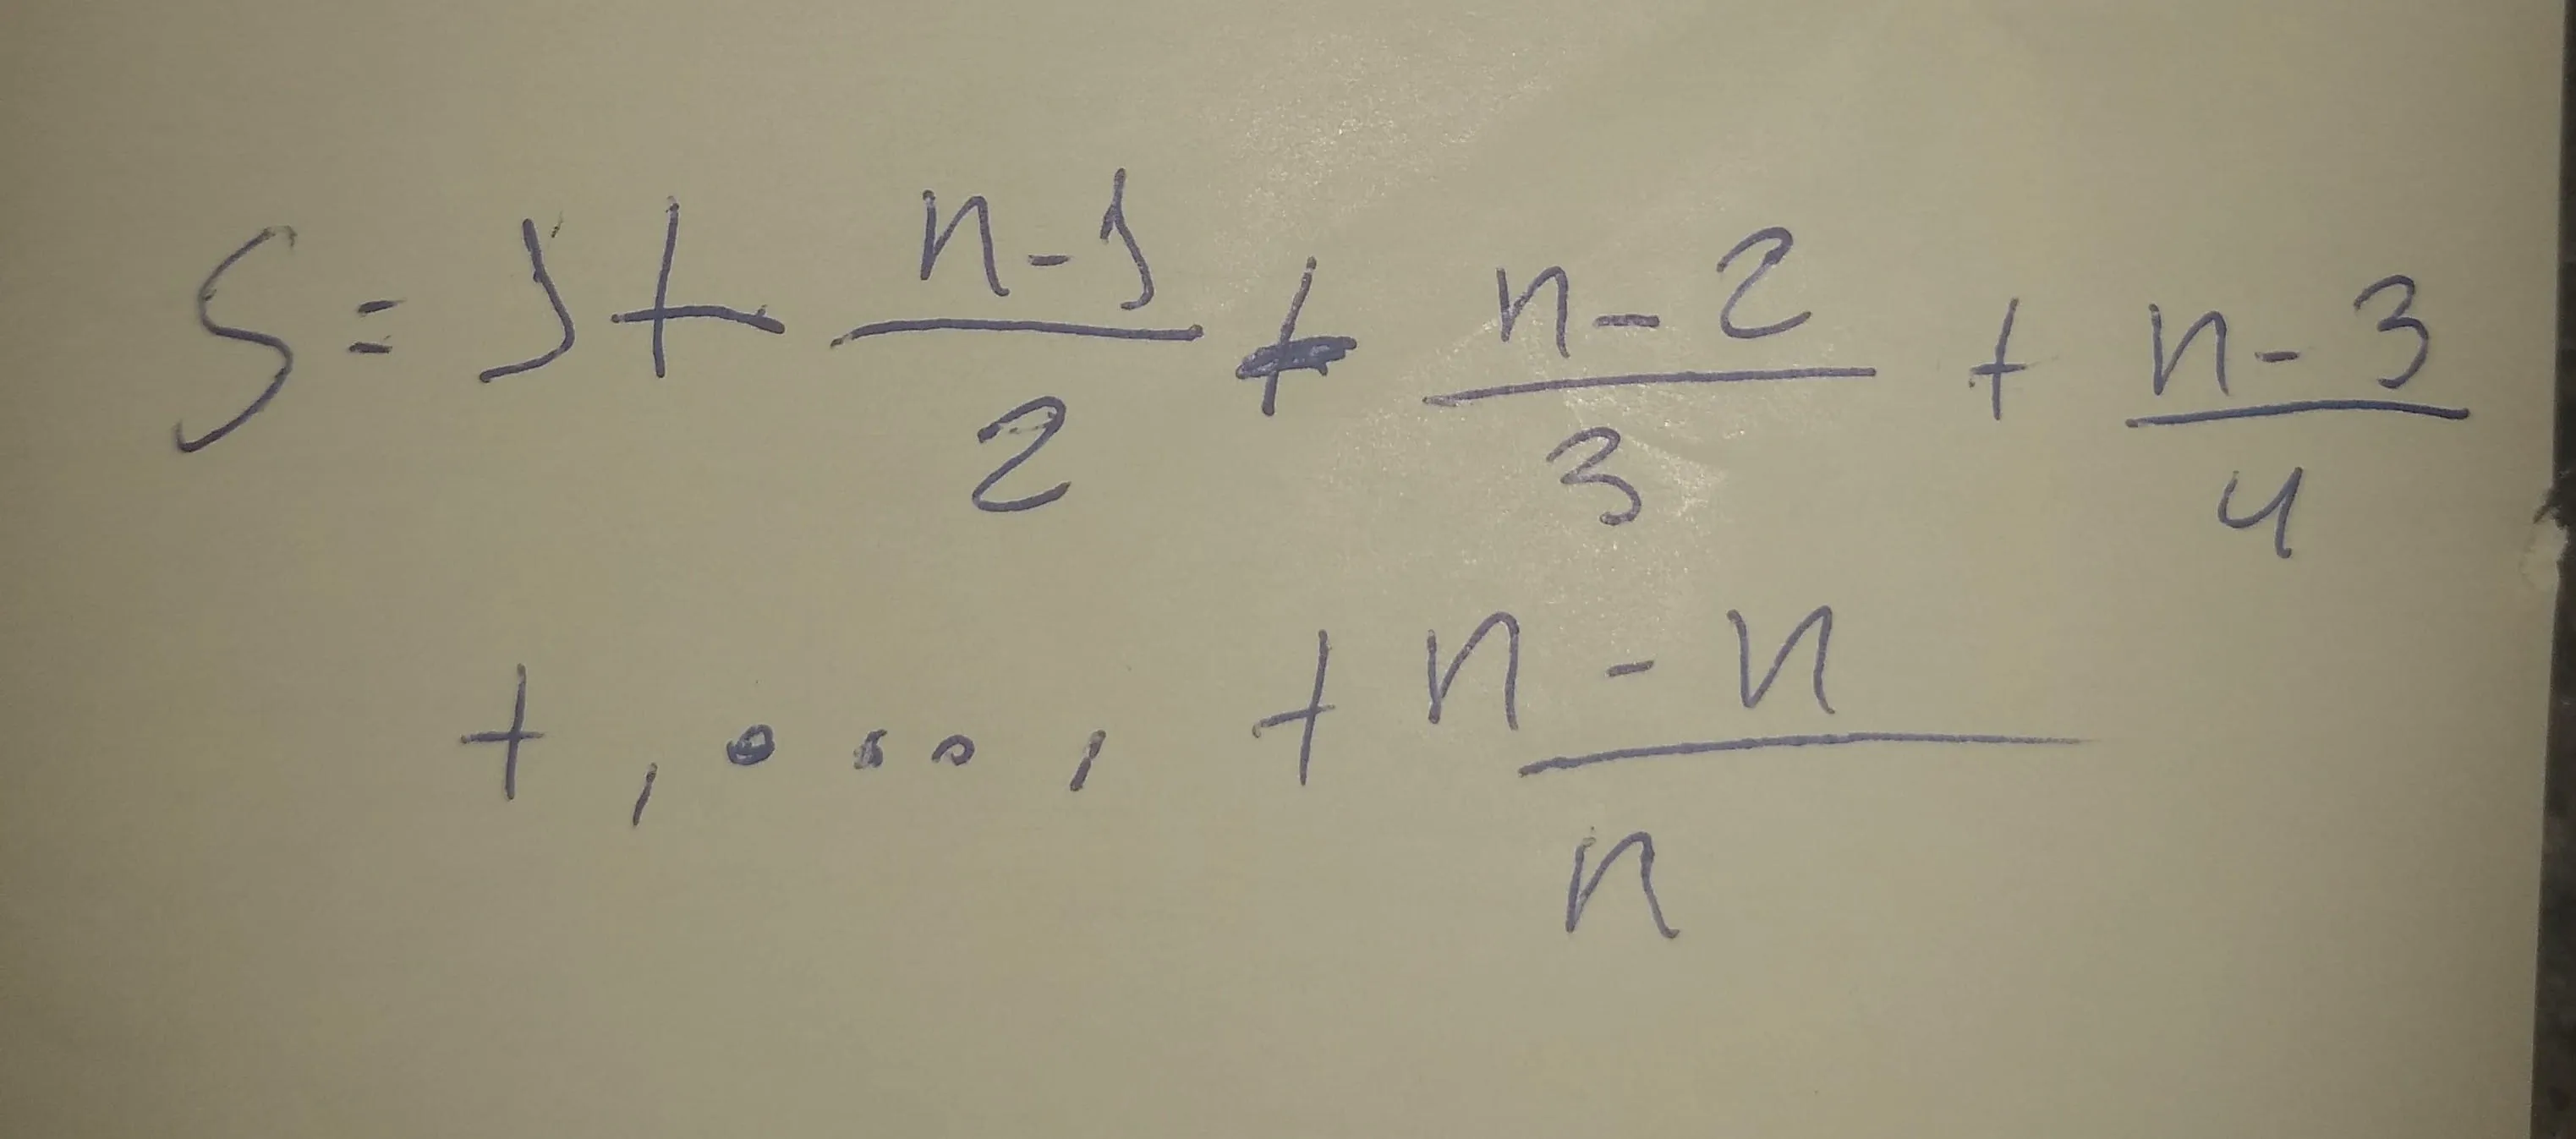 S = 1 + (n-1)/2 + (n-2)/3 + (n-3)/4
+ , ... , + (n-n)/n